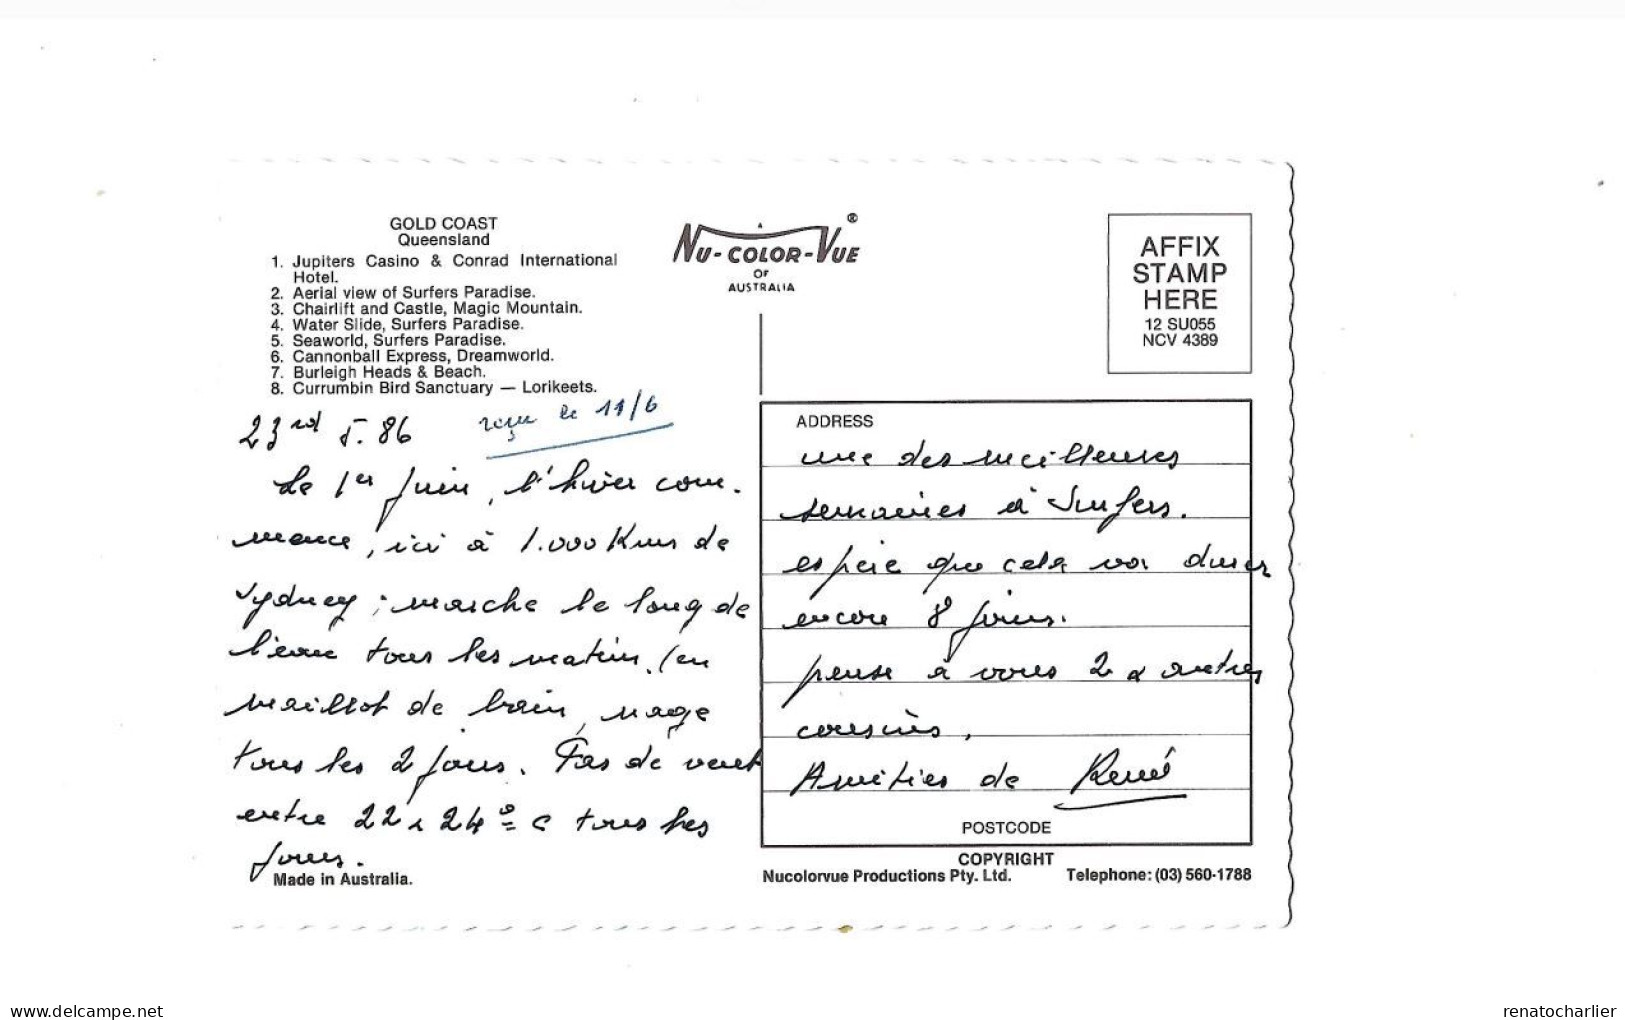 GOLD COAST
Queensland
1. Jupiters Casino & Conrad International
Hotel.
2. Aerial view of Surfers Paradise.
3. Chairlift and Castle, Magic Mountain.
4. Water Slide, Surfers Paradise.
5. Seaworld, Surfers Paradise.
6. Cannonball Express, Dreamworld.
7. Burleigh Heads & Beach.
8. Currumbin Bird Sanctuary — Lorikeets.
23rd 5.86
reçue le 11/6
Le 1er Juin, l'hiver com-
mence, ici à 1.000 Kms de
Sydney; marche le long de
l'eau tous les matins (en
maillot de bain, nage
tous les 2 jours. Pas de vent
entre 22 à 24° C tous les
jours.
Made in Australia.
A
NU-COLOR-VUE ®
OF
AUSTRALIA
AFFIX
STAMP
HERE
12 SU055
NCV 4389
ADDRESS
une des meilleures
semaines à Surfers.
espère que cela va durer
encore 8 jours.
pense à vous 2 & autres
cousins,
Amitiés de René
POSTCODE
COPYRIGHT
Nucolorvue Productions Pty. Ltd. Telephone: (03) 560-1788
delcampe.net
renatocharlier